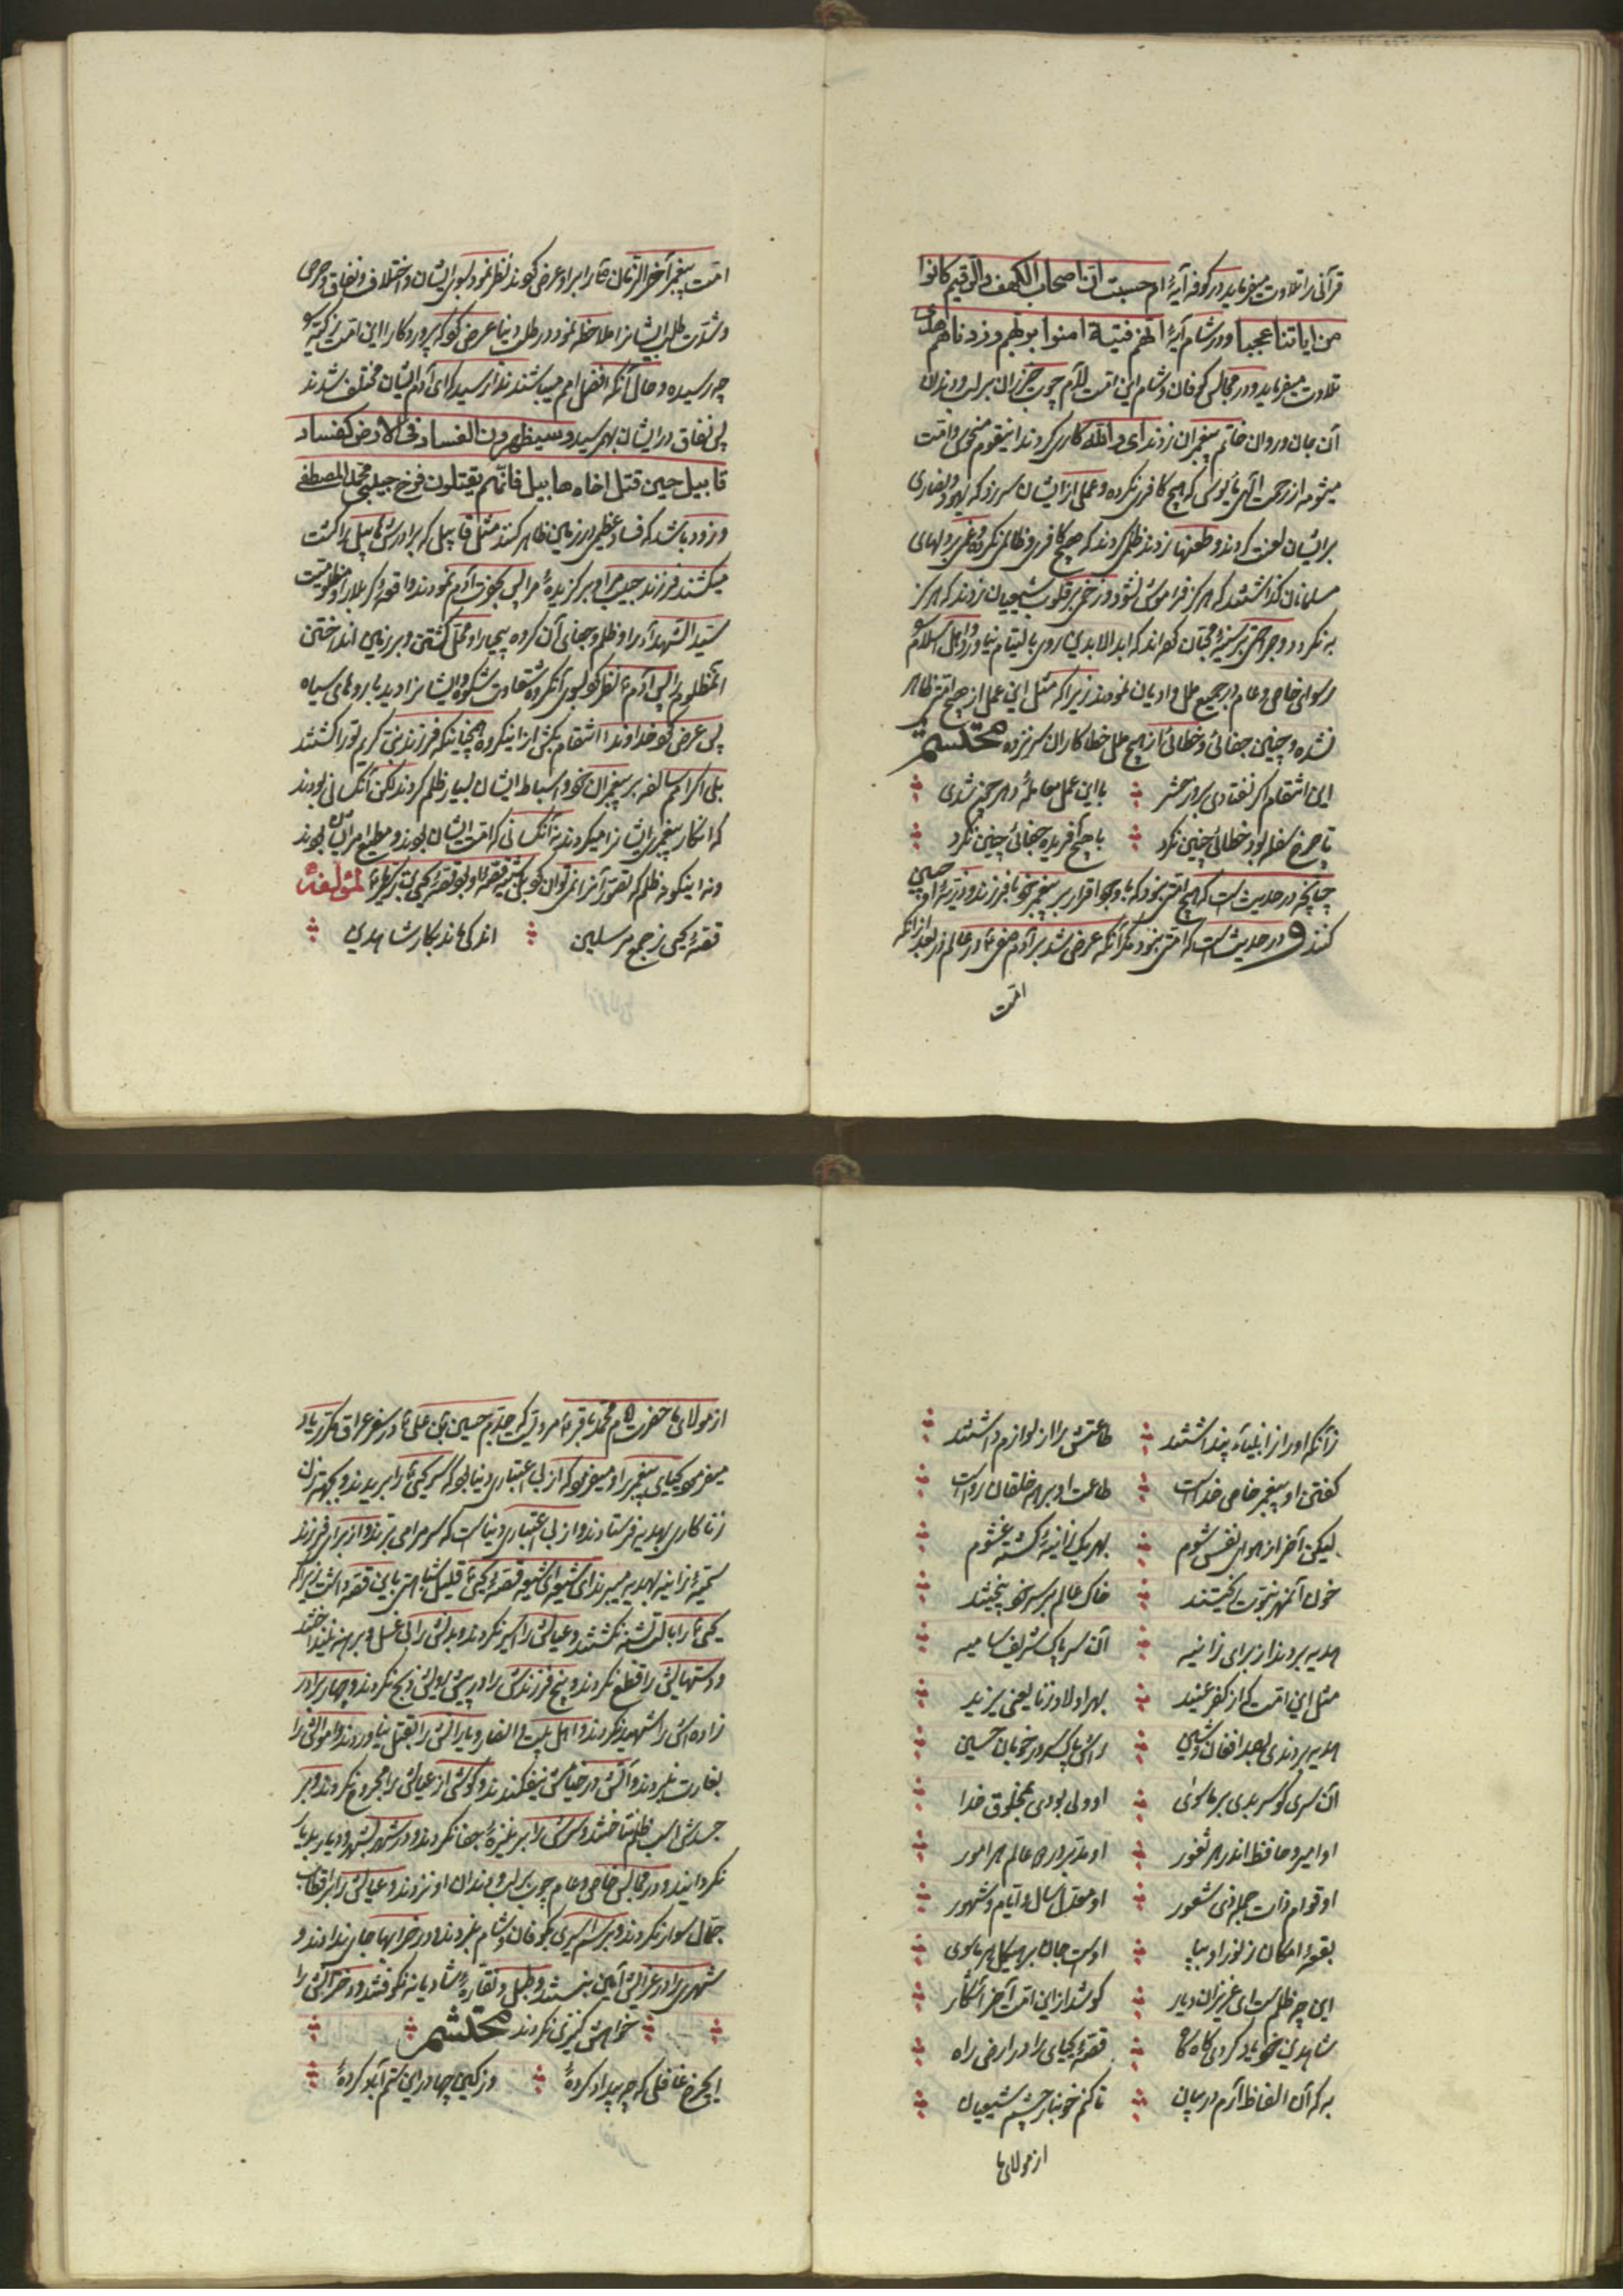 قرآنی را تلاوت میفرماید در کوفه آیهٔ ام حسبت ان اصحاب الکهف والرقیم کانوا
من ایاتنا عجبا و در شام آیهٔ انهم فتیة امنوا بربهم و زدناهم هدی
تلاوت میفرماید و در مجالس کوفان و شام این امت لئام چوب خیزران بر لب و دندان
آن جان و روان خاتم پیغمبران زدند ای والله کاری کردند اینقوم منحوس و امت
میشومه از رحمت الهی مأیوس که هیچ کافری نکرده و عملی از ایشان سر زد که یهود و نصاری
بر ایشان لعنت کردند و طعنها زدند ظلمی کردند که هیچ کافری و ظالمی نکرده و غمی بر دلهای
مسلمانان گذاشتند که هرگز فراموش نشود و زخمی بر قلوب شیعیان زدند که هرگز
به نگردد و جراحتی بر سینهٔ محبان که ابد الابدین روی بالتیام نیاورد و اهل اسلام را
رسوای خاص و عام در جمیع ملل و ادیان نمودند زیرا که مثل این عمل از هیچ امتی ظاهر
نشده و چنین جفائی و خطائی از هیچ ملل خطاکاران سر نزده محتشم
این انتقام گر نفتادی بروز حشر با این عمل معاملهٔ دهر چون شدی
تا چرخ سفله بود خطائی چنین نکرد با هیچ آفریده جفائی چنین نکرد
چنانچه در حدیث است که هیچ امتی نبود که با وجود اقرار بر پیغمبر خود با فرزند و ذریهٔ او چنین
کنند و در حدیث است که امتی نبود مگر آنکه عرض شد بر آدم صفی ع در عالم ذر بعد از آنکه
امت
امت پیغمبر آخر الزمان ص را بر او عرض کردند نظر نمود بسوی ایشان و اختلاف و نفاق و حرص
و شدت طلب ایشانرا ملاحظه نمود در طلب دنیا عرض کرد که پروردگارا این امت زکیه را
چه رسیده و حال آنکه افضل امم میباشند ندا رسید که ای آدم ایشان مختلف شدند
پس نفاق در ایشان بهم رسید و سیظهرون الفساد فی الارض کفساد
قابیل حین قتل اخاه هابیل فانهم یقتلون فرخ حبیبی محمد المصطفی
و زود باشد که فساد عظیم در زمین ظاهر کنند مثل قابیل که برادرش هابیل را کشت
میکشند فرزند حبیب مرا و برگزیدهٔ مرا پس بحضرت آدم نمودند واقعهٔ کربلا را و مظلومیت
سید الشهدآء را و ظلم و جفای آن گروه بیحیا را و محل کشتن و بر زمین انداختن
آنمظلوم را پس آدم ع نظر کرد بسوی آنگروه شقاوت شکوه و ایشانرا دید با روهای سیاه
پس عرض کرد خداوندا انتقام بکش از اینگروه همچنانیکه فرزند نبی کریم تو را کشتند
بلی اگر امم سالفه بر پیغمبران خود و اسباط ایشان بسیار ظلم کردند لکن آنکسانی بودند
که انکار پیغمبری ایشانرا میکردند نه آنکسانی که امت ایشان بودند و مطیع امر ایشان بودند
و نه اینگونه ظلم که تصور آنرا نمیتوان کرد لمؤلفه
قصهٔ یحیی ز جمع مرسلین اندکی ماند بکار شاه دین
زآنکه او را ز انبیآء پنداشتند طاعتش را از لوازم داشتند
گفتی او پیغمبر خاص خداست طاعت او بر همه خلقان رواست
لیکن آخر از هوای نفس شوم بهر یک زانیهٔ گشته غشوم
خون آنمهر نبوت ریختند خاک عالم بر سر خود بیختند
هدیه بردند از برای زانیه آن سر پاک شریف سامیه
مثل این امت که از کفر عنید بهر اولاد زنا یعنی یزید
هدیه بردندی بصد افغان و شین راس پاک سرور خوبان حسین
آن سری کو سر بدی بر ماسوی او ولی بودی بمخلوق خدا
او امیر و حافظ اندر هر ثغور او مدبر در همه عالم هر امور
او قوام ذات جمله ذی شعور او معدل سال و ایام و شهور
بقعهٔ امکان ز نور او بپا اوست جان بر هیکل هر ماسوی
این چه ظلم است ای عزیزان دیار کو شد از این امت آخر آشکار
شاه دین خود یاد کردی گاه گاه قصهٔ یحیای را در ارض راه
به که آن الفاظ آرم در بیان تا کنم خونبار چشم شیعیان
از مولای ما
از مولای ما حضرت امام محمد باقر ع مرویست که جدم حسین بن علی ع در سفر عراق مکرر یاد
میفرمود یحیای پیغمبر را و میفرمود که از بی اعتباری دنیا بود که سر یحیی ع را بریدند و بجهة زن
زناکاری بهدیه فرستادند و از بی اعتباری دنیاست که سر مرا می برند و از برای فرزند
سمیهٔ زانیه بهدیه میبرند ای شیعه ای شیعه قصهٔ یحیی ع قلیل شباهتی باین قصه داشت زیرا که
یحیی ع را با لب تشنه نکشتند و عیالش را اسیر نکردند و بدنش را بی غسل و برهنه نینداختند
و دستهایش را قطع نکردند و پنج فرزندش را در پیش رویش ذبح نکردند و چهار برادر
زاده اش را شهید نکردند و اهل بیت و انصار و یارانش را بقتل نیاوردند و اموالش را
بغارت نبردند و آتش در خیامش نیفکندند و گوشی از عیالش را مجروح نکردند و بر
جسدش اسب ظلم نتاختند و سرش را بر نیزهٔ جفا نکردند و در شهر بشهر و دیار بدیار
نگردانیدند و در مجالس خاص و عام چوب بر لب و دندان او نزدند و عیالش را بر اقتاب
جمال سوار نکردند و برسم اسیری بکوفان و شام نبردند و در خرابها جای ندادند و
شهری را در عزایش آیین نبستند و طبل و نقارهٔ شادیانه نکوفتند و دخترانش را
خواهش کنیزی نکردند محتشم
ای چرخ غافلی که چه بیداد کردهٔ وز کین چها در این ستم آباد کردهٔ